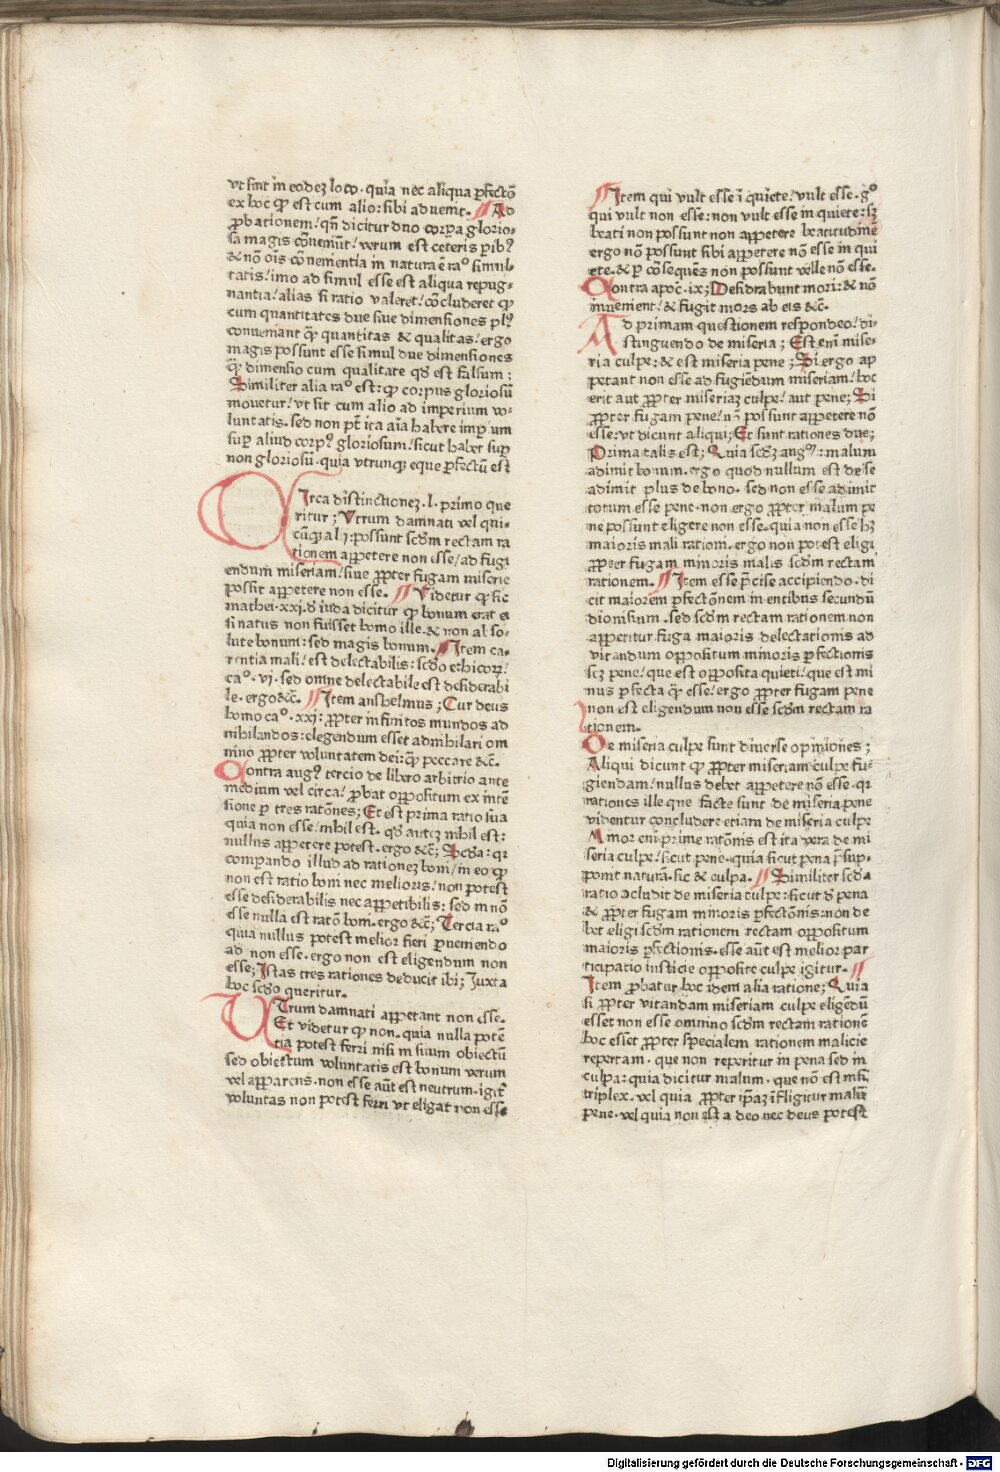 vt sint in eodeȝ loco. quia nec aliqua ꝑfectō
ex hoc ꝙ est cum alio: sibi aduenit. ¶ Ad
ꝓbationem/ qn̄ dicitur duo corꝑa glorio-
sa magis cōueniūt/ verum est ceteris ꝑibꝰ
& nō oīs cōuenientia in natura ē raᵒ simul
tatis/ imo ad simul esse est aliqua repug-
nantia/ alias si ratio valeret/ cōcluderet ꝙ
cum quantitates due siue dimensiones plꝰ
conueniant q̄ꝫ quantitas & qualitas/ ergo
magis possunt esse simul due dimensiones
q̄ꝫ dimensio cum qualitate qd̄ est falsum;
Similiter alia raᵒ est: ꝙ corpus gloriosū
mouetur/ vt sit cum alio ad imperium vo-
luntatis. sed non pt̄ ita aīa habere imꝑium
suꝑ aliud corpꝰ gloriosum/ sicut habet suꝑ
non gloriosū. quia vtrunqꝫ eque ꝑfectū est
CIrca distinctioneȝ .l. primo que
ritur; Vtrum damnati vel qui-
cūqꝫ alij: possunt scd̄m rectam ra
tionem appetere non esse/ ad fugi
endum miseriam/ siue ꝓpter fugam miserie
possit appetere non esse. ¶ Videtur ꝙ sic
mathei .xxj. d̄ iuda dicitur ꝙ bonum erat ei
si natus non fuisset homo ille. & non abso-
lute bonum: sed magis bonum. ¶ Item ca-
rentia mali/ est delectabilis: scd̄o ethicoꝝ/
caᵒ. vj. sed omne delectabile est desiderabi
le. ergo &c̄. ¶ Item anshelmus; Cur deus
homo caᵒ. xxj: ꝓpter infinitos mundos ad
nihilandos: elegendum esset adnihilari om
nino ꝓpter voluntatem dei: q̄ꝫ peccare &c̄.
Contra augꝰ tercio de libero arbitrio ante
medium vel circa/ ꝓbat oppositum ex intē
sione ꝑ tres ratōnes; Et est prima ratio sua
quia non esse/ nihil est. qd̄ auteȝ nihil est:
nullus appetere potest. ergo &c̄; Scd̄a: qr
comparando illud ad rationeȝ boni/ in eo ꝙ
non est ratio boni nec melioris/ non potest
esse desiderabilis nec appetibilis: sed in nō
esse nulla est ratō boni. ergo &c̄; Tercia raᵒ
quia nullus potest melior fieri ꝑueniendo
ad non esse. ergo non est eligendum non
esse; Istas tres rationes deducit ibi; Juxta
hoc scd̄o queritur.
VTrum damnati appetant non esse.
Et videtur ꝙ non. quia nulla potē
tia potest ferri nisi in suum obiectū
sed obiectum voluntatis est bonum verum
vel apparens. non esse aūt est neutrum. igit̄
voluntas non potest ferri vt eligat non esse
¶ Item qui vult esse ī quiete/ vult esse. gᵒ
qui vult non esse: non vult esse in quiete: sȝ
beati non possunt non appetere beatitudinē
ergo nō possunt sibi appetere nō esse in qui
ete. & ꝑ cōsequēs non possunt velle nō esse.
Contra apoc̄. ix; Desid̄rabunt mori: & nō
inuenient/ & fugit mors ab eis &c̄.
AD primam questionem respondeo/ di-
stinguendo de miseria; Est eni mise-
ria culpe: & est miseria pene; Si ergo ap
petant non esse ad fugiēdum miseriam/ hoc
erit aut ꝓpter miseriaȝ culpe/ aut pene; Si
ꝓpter fugam pene/ nō possunt appetere nō
esse: vt dicunt aliqui; Et sunt rationes due;
Prima talis est; Quia scd̄ȝ augꝰ: malum
adimit bonum. ergo quod nullum est de se
adimit plus de bono. sed non esse adimit
totum esse pene. non ergo ꝓpter malum pe
ne possunt eligere non esse. quia non esse hȝ
maioris mali rationi. ergo non potest eligi
ꝓpter fugam minoris malis scd̄m rectam
rationem. ¶ Item esse p̄cise accipiendo. di
cit maiorem ꝑfectōnem in entibus secundū
dionisium. sed scd̄m rectam rationem non
appetitur fuga maioris delectationis ad
vitandum oppositum minoris ꝑfectionis
scȝ pene/ que est opposita quieti/ que est mi
nus ꝑfecta q̄ꝫ esse/ ergo ꝓpter fugam pene
non est eligendum non esse scd̄m rectam ra
tionem.
De miseria culpe sunt diuerse opiniones;
Aliqui dicunt ꝙ ꝓpter miseriam culpe fu-
giendam/ nullus debet appetere nō esse. qr
rationes ille que facte sunt de miseria pene
videntur concludere etiam de miseria culpe
Maior eni prime ratōnis est ita vera de mi
seria culpe/ sicut pene. quia sicut pena p̄sup-
ponit naturā. sic & culpa. ¶ Similiter scd̄a
ratio ꝯcludit de miseria culpe: sicut d̄ pena
& ꝓpter fugam minoris ꝑfectōnis: non de
bet eligi scd̄m rationem rectam oppositum
maioris ꝑfectionis. esse aūt est melior par
ticipatio iusticie opposite culpe igitur. ¶
Item ꝓbatur hoc idem alia ratione; Quia
si ꝓpter vitandam miseriam culpe eligēdū
esset non esse omnino scd̄m rectam rationē
hoc esset ꝓpter specialem rationem malicie
repertam. que non reperitur in pena sed in
culpa: quia dicitur malum. que nō est nisi
triplex. vel quia ꝓpter ip̄aȝ īfligitur malū
pene. vel quia non est a deo nec deus potest
Digitalisierung gefördert durch die Deutsche Forschungsgemeinschaft - DFG